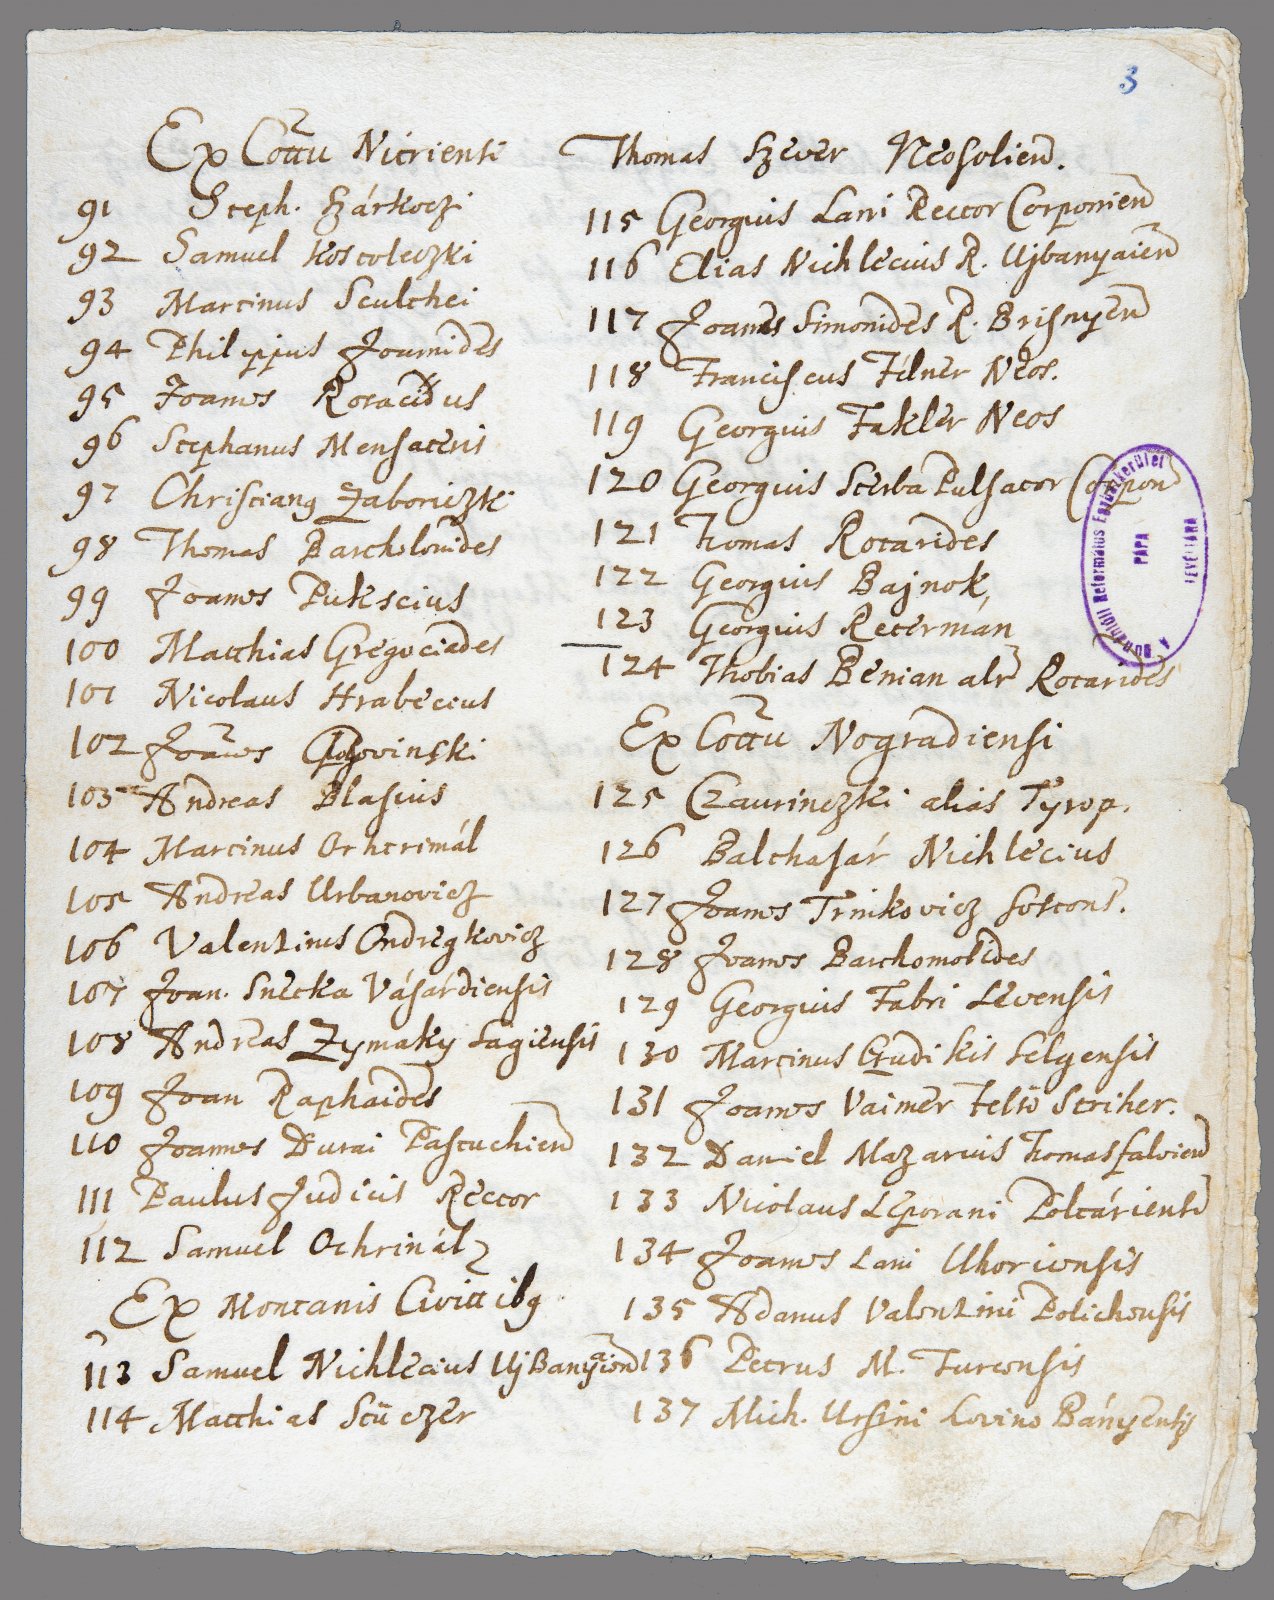 3
Ex Cottu Nitriensi
91 Steph. Szárkoczi
92 Samuel Kostoleczki
93 Martinus Sculthei
94 Philippus Joannides
95 Joannes Rotacidus
96 Stephanus Mensatoris
97 Christiang Zaboriczki
98 Thomas Bartholonides
99 Joannes Pukscius
100 Matthias Gregociades
101 Nicolaus Hrabecius
102 Joannes
103 Andreas Blasius
104 Martinus
105 Andreas Urbanovicz
106 Valentinus Ondregkovicz
107 Joan. Snecka Vásárdiensis
108 Andreas Zymaky Sagiensis
109 Joan Raphaides
110 Joannes Durai Pastuchien
111 Paulus Judicis Rector
112 Samuel Ochrinál
Ex Montanis Civittibg
113 Samuel Nichlecius UjBanyaien
114 Matthias Stüczer
Thomas Szever Neosolien.
115 Georgius Lani Rector Corponien
116 Elias Nichlecius R. Ujbanyaien
117 Joannes Simonides R. Brisnyen
118 Franciscus Félner Neos.
119 Georgius Fakler Neos
120 Georgius Sterba Pulsator Corpon
121 Tomas Rotarides
122 Georgius Bajnok
123 Georgius Reterman
124 Thobias Benian alr Rotarides
Ex Cottu Nogradiensi
125 Czaurinczki alias Tyrop.
126 Balthasár Nichlecius
127 Joannes Trnikovicz
128 Joannes Barthomolides
129 Georgius Fabri Levensis
130 Martinus Grudikis Selyensis
131 Joannes Vaimer Felsö Striher.
132 Daniel Mazarius Tomasfalvien
133 Nicolaus Leporani Poltáriensi
134 Joannes Lani Uhoriensis
135 Adamus Valentini Polichensis
136 Petrus M. Turensis
137 Mich. Ursini Lovino Bányensis
A Dunántúli Református Egyházkerület
PÁPA
LEVÉLTÁRA